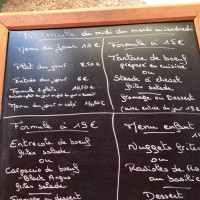 Formule du midi du mardi au vendredi
Menu du jour 12 €
Plat du jour : 8,50 €
Entrée du jour 6 €
Formule 2 plats : 10,50 €
Menu du jour + café
Formule à 15 €
Tartare de boeuf
préparé en cuisine
ou
Steack à cheval
frites salade
fromage ou Dessert
Formule à 19 €
Entrecote de boeuf
frites salade
ou
Carpaccio de boeuf
frites salade
Fromage ou dessert
Menu enfant
Nuggets frites
ou
Ravioles de Ro
au basilic
Dessert